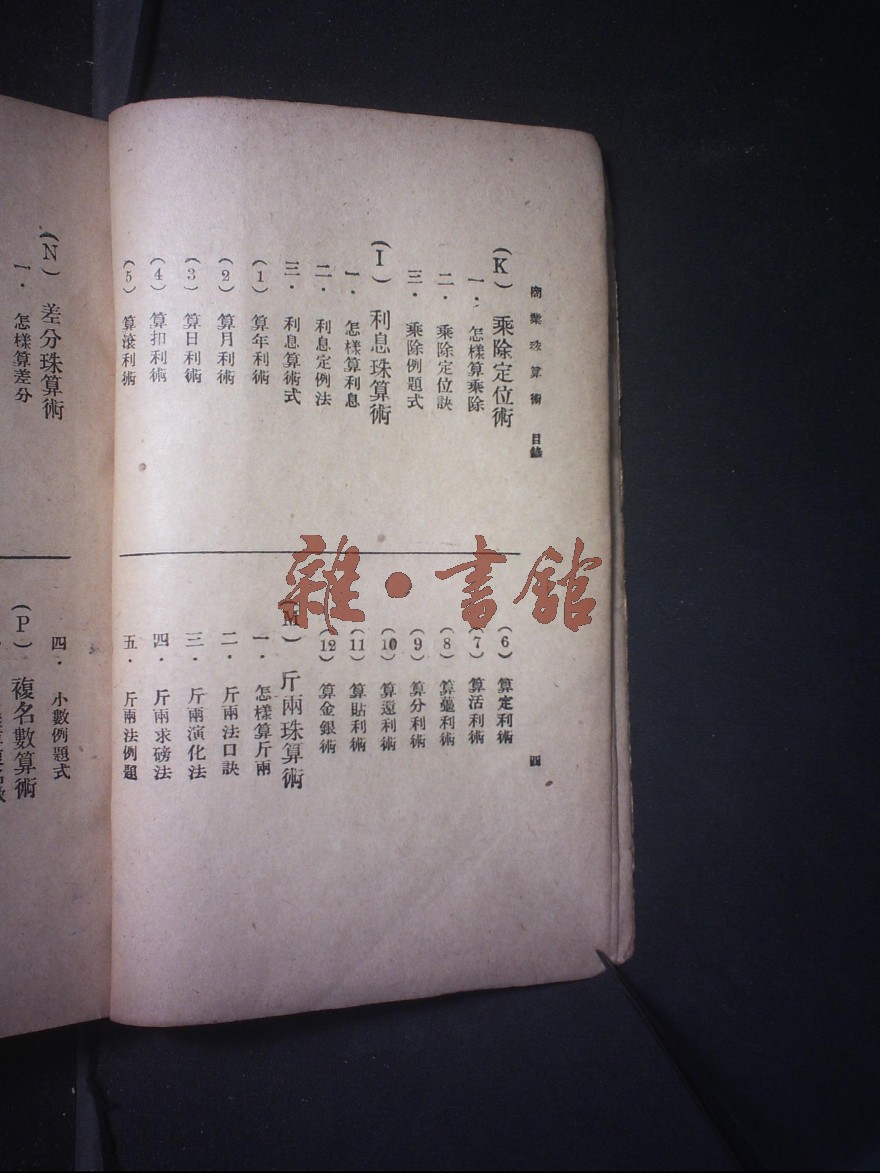 商業珠算術 目錄
四
(K) 乘除定位術
一・怎樣算乘除
二・乘除定位訣
三・乘除例題式
(I) 利息珠算術
一・怎樣算利息
二・利息定例法
三・利息算術式
(1) 算年利術
(2) 算月利術
(3) 算日利術
(4) 算扣利術
(5) 算滾利術
(6) 算定利術
(7) 算活利術
(8) 算躉利術
(9) 算分利術
(10) 算還利術
(11) 算貼利術
(12) 算金銀術
(M) 斤兩珠算術
一・怎樣算斤兩
二・斤兩法口訣
三・斤兩演化法
四・斤兩求磅法
五・斤兩法例題
(N) 差分珠算術
一・怎樣算差分
四・小數例題式
(P) 複名數算術
雜・書館